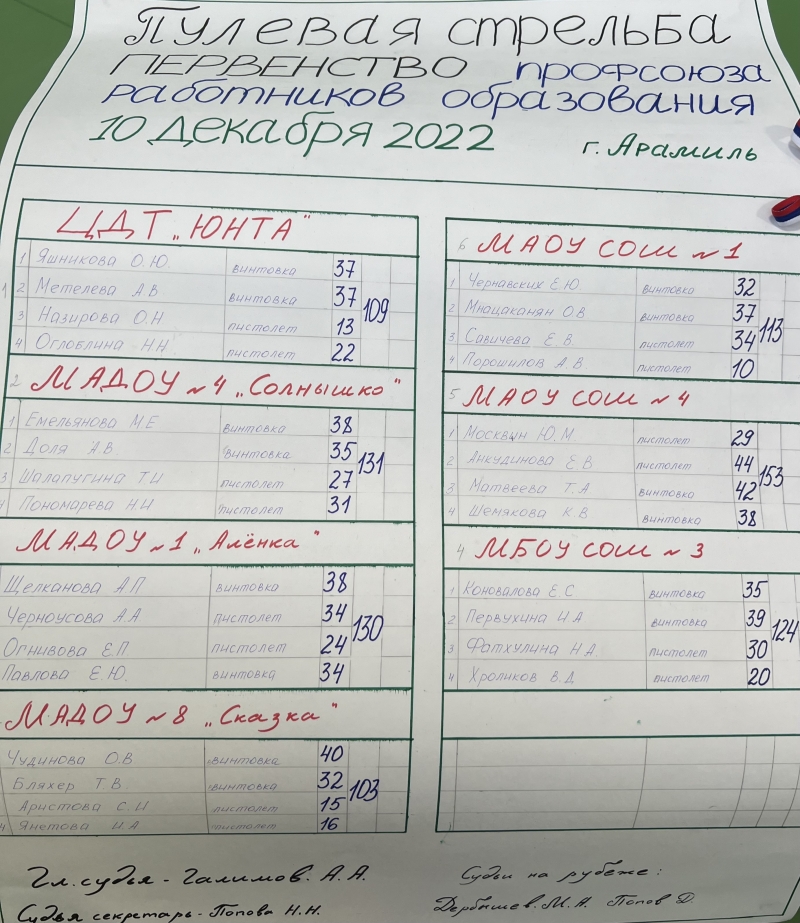 Пулевая стрельба
ПЕРВЕНСТВО профсоюза
работников образования
10 декабря 2022 г. Арамиль
ЦДТ „ЮНТА"
1 Яшникова О.Ю. винтовка 37
2 Метелева А В винтовка 37 109
3 Назирова О.Н пистолет 13
4 Оглоблина Н Н пистолет 22
2 МАДОУ №4 „Солнышко"
1 Емельянова М.Е винтовка 38
2 Доля А.В винтовка 35 131
3 Шалапугина Т.И пистолет 27
4 Пономарева Н.И пистолет 31
МАДОУ №1 „Алёнка"
Щелканова А П винтовка 38
Черноусова А.А пистолет 34 130
Огнивова Е.П пистолет 24
Павлова Е.Ю. винтовка 34
МАДОУ №8 „Сказка"
Чудинова О.В винтовка 40
Бляхер Т.В. винтовка 32 103
Аристова С.И пистолет 15
4 Янетова И.А пистолет 16
6 МАОУ СОШ №1
1 Чернавских Е.Ю винтовка 32
2 Мнацаканян О.В винтовка 37 113
3 Савичева Е В пистолет 34
4 Порошилов А.В пистолет 10
5 МАОУ СОШ №4
1 Москвин Ю.М пистолет 29
2 Анкудинова Е.В пистолет 44 153
3 Матвеева Т.А винтовка 42
4 Шемякова К В винтовка 38
4 МБОУ СОШ №3
1 Коновалова Е С винтовка 35
2 Первухина И.А винтовка 39 124
3 Фатхулина Н.А пистолет 30
4 Хроликов В.Д пистолет 20
Гл. судья - Галимов. А.А.
Судья секретарь - Попова Н.Н.
Судьи на рубеже:
Дербышев. М.А. Попов Д.